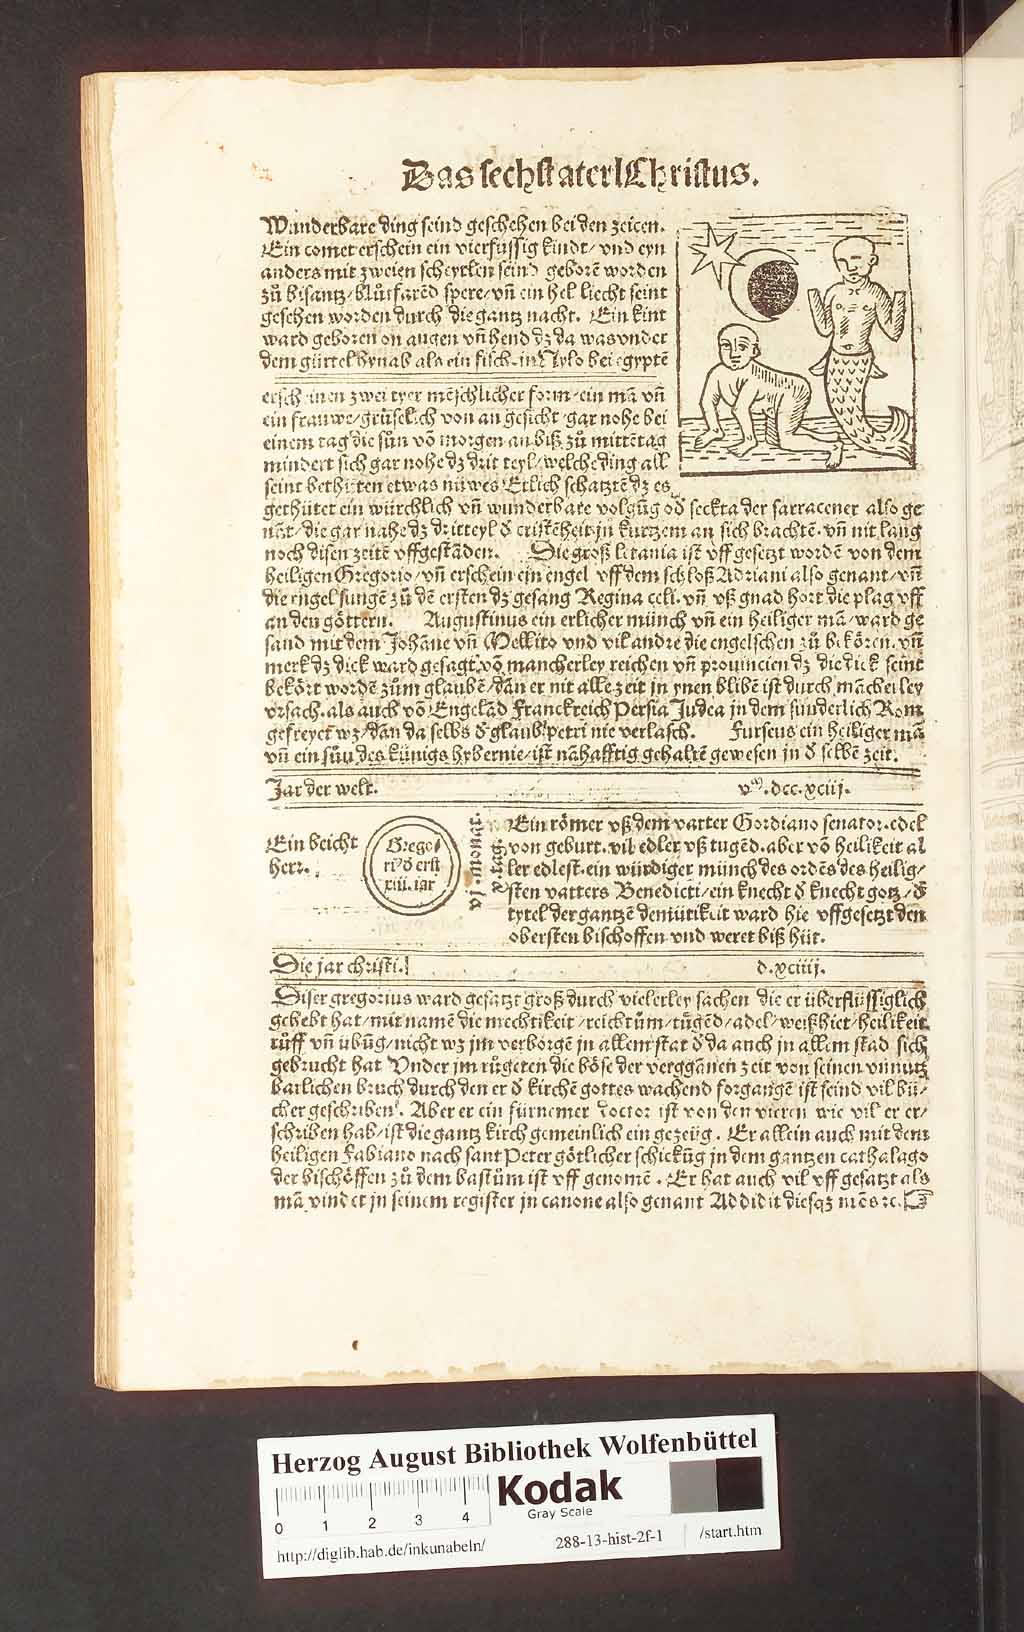 Das sechst aterl Christus.
Wunderbare ding seind geschehen bei den zeiten.
Ein comet erschein ein vierfüssig kindt/ vnd eyn
anders mit zweien scheytlen seind geborē worden
zů bisantz/ blůtfarēd spere/ vn̄ ein hel liecht seint
gesehen worden durch die gantz nacht. Ein kint
ward geboren on augen vn̄ hend dz da was vnder
dem gürtel hynab als ein fisch. in Nylo bei egyptē
erschinen zwei tyer mēschlicher form/ ein mā vn̄
ein frauwe/ grüselich von angesicht/ gar nohe bei
einem tag die sün vō morgen an biß zů mittētag
mindert sich gar nohe dz drit teyl/ welche ding all
seint bethüten etwas nüwes Etlich schatztē dz es
gethütet ein würchlich vn̄ wunderbare volgūg od̄ seckta der sarracener also ge
nāt/ die gar nahe dz dritteyl d̄ cristēheit jn kurtzem an sich brachtē. vn̄ nit lang
noch disen zeitē vffgestāden. Die groß letania ist vff gesetzt wordē von dem
heiligen Gregorio/ vn̄ erschein ein engel vff dem schloß Adriani also genant/ vn̄
die engel sungē zů dē ersten dz gesang Regina celi. vn̄ vß gnad hort die plag vff
an den göttern. Augustinus ein erlicher münch vn̄ ein heiliger mā/ ward ge
sand mit dem Johāne vn̄ Mellito vnd vil andre die engelschen zů bekören. vn̄
merk dz dick ward gesagt vō mancherley reichen vn̄ prouincien dz die dick seint
bekört wordē zům glaubē/ dan er nit alle zeit jn ynen blibē ist durch mācherley
vrsach. als auch vō Engelād Franckreich Persia Judea jn dem sunderlich Rom
gefreyet wz/ dan da selbs d̄ glaub petri nie verlasch. Furseus ein heiliger mā
vn̄ ein sun des künigs hybernie/ ist nāhafftig gehaltē gewesen jn d̄ selbē zeit.
Jar der welt. vᵐ. dcc. xciij.
Ein beicht
herr.
Grego/
riꝰ d̄ erst
xiii. jar
vi. monat.
Ein römer vß dem vatter Gordiano senator. edel
von geburt. vil edler vß tugēd. aber vō heilikeit al
ler edlest. ein würdiger münch des ordēs des heilig/
sten vatters Benedicti/ ein knecht d̄ knecht gotz/ d̄
tytel der gantzē demütikeit ward hie vffgesetzt den
obersten bischoffen vnd weret biß hüt.
Die jar christi. d. xciiij.
Diser gregorius ward gesatzt groß durch vielerley sachen die er überflüssiglich
gehebt hat/ mit namē die mechtikeit/ reichtům/ tügēd/ adel/ weißhiet/ heilikeit
růff vn̄ übūg/ nicht wz jm verborgē jn allem stat d̄ da auch jn allem stad sich
gebrucht hat Vnder jm růgeten die böse der verggānen zeit von seinen vnnutz
barlichen bruch durch den er d̄ kirchē gottes wachend forgangē ist seind vil bü/
cher geschriben. Aber er ein fürnemer doctor ist von den vieren wie vil er er/
schriben hab/ ist die gantz kirch gemeinlich ein gezeüg. Er allein auch mit dem
heiligen Fabiano nach sant Peter götlicher schickūg jn dem gantzen cathalago
der bischöffen zů dem bastům ist vff genomē. Er hat auch vil vff gesatzt als
mā vindet jn seinem register jn canone also genant Addidit diesqz
Herzog August Bibliothek Wolfenbüttel
Kodak
Gray Scale
0 1 2 3 4
http://diglib.hab.de/inkunabeln/ 288-13-hist-2f-1 /start.htm